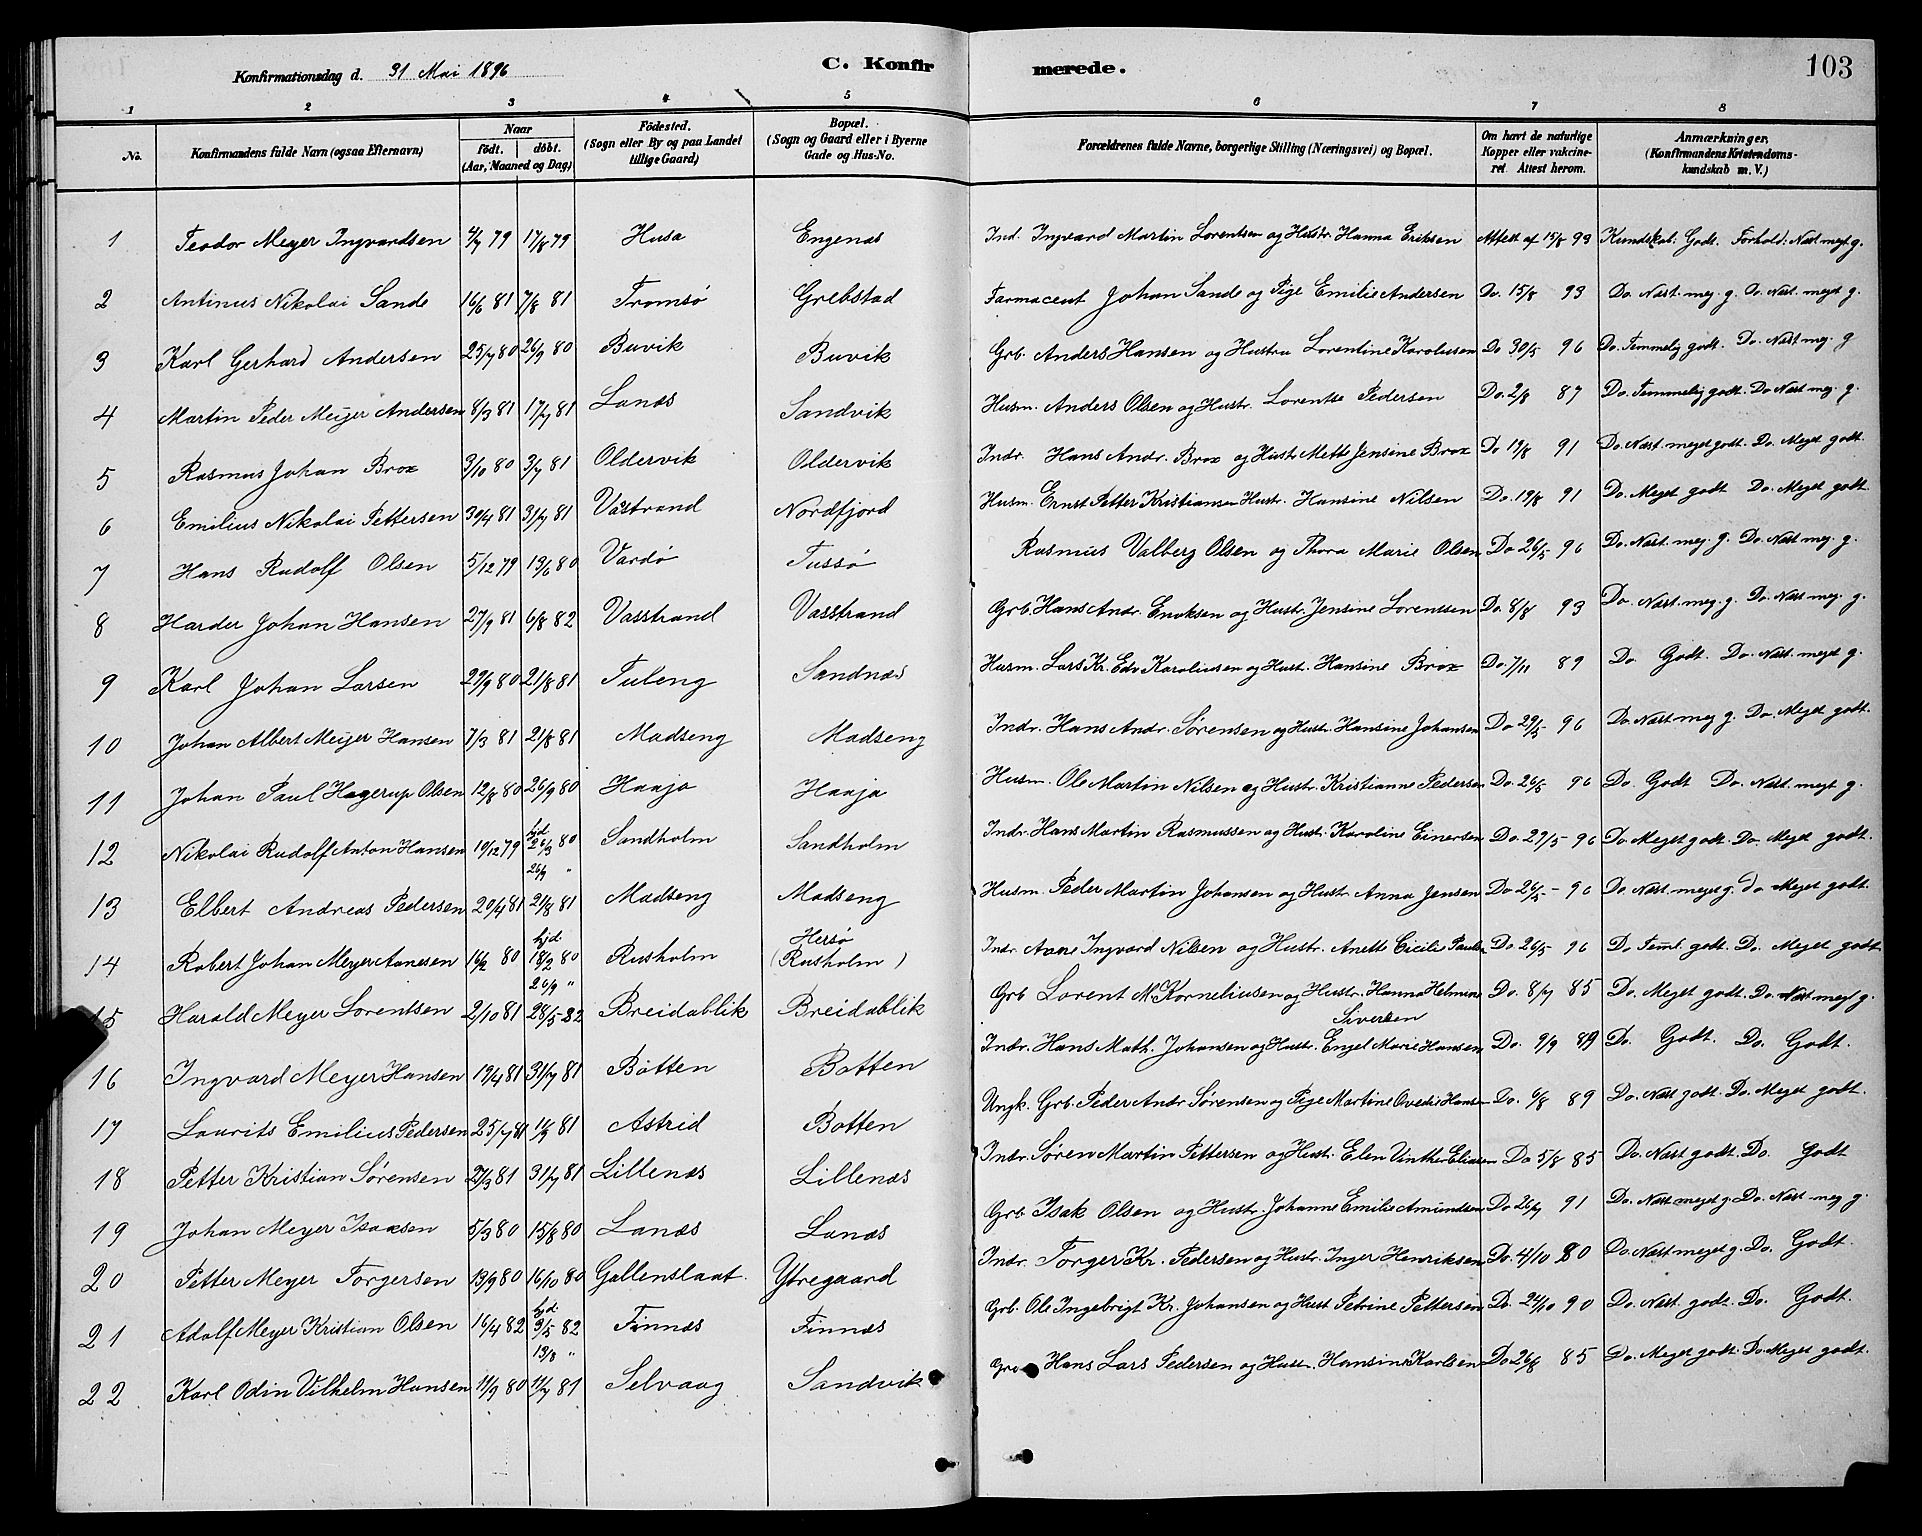 Konfirmationsdag d. 31 Mai 1896
C. Konfirmerede.
103
1 2 3 4 5 6 7 8
No. Konfirmandens fulde Navn (ogsaa Efternavn) Naar födt. döbt. (Aar, Maaned og Dag) Födested. (Sogn eller By og paa Landet tillige Gaard) Bopæl. (Sogn og Gaard eller i Byerne Gade og Hus-No. Forældrenes fulde Navne, borgerlige Stilling (Næringsvei) og Bopæl. Om havt de naturlige Kopper eller vakcineret. Attest herom. Anmærkninger, (Konfirmandens Kristendomskundskab m. V.)
1 Teodor Meyer Ingvardsen 4/7 79 17/8 79 Husa Engenæs Ind. Ingvard Martin Lorentsen og Hustr. Hanna Eriksen Attest af 15/8 93 Kundskab: Godt. Forhold: Næst meget g.
2 Antinus Nikolai Sande 16/6 81 7/8 81 Tromsø Grebstad Farmaceut Johan Sande og Pige Emilie Andersen Do. 15/8 93 Do. Næst. meg. g. Do. Næst. meget g.
3 Karl Gerhard Andersen 25/7 80 26/9 80 Buvik Buvik Grb. Anders Hansen og Hustru Lorentine Karolusen Do 30/5 96 Do. Temmelig godt. Do. Næst meg. g
4 Martin Peder Meyer Andersen 8/3 81 17/7 81 Lanes Sandvik Husm. Anders Olsen og Hustr. Lorentse Pedersen Do. 2/8 87 Do. Temmelig godt. Do Næst meg. g.
5 Rasmus Johan Brox 3/10 80 3/7 81 Oldervik Oldervik Indr. Hans Andr. Brox og Hust. Mette Jensine Brox Do 19/8 91 Do. Næst. meget godt. Do. Meget godt.
6 Emilius Nikolai Pettersen 30/4 81 31/7 81 Vasstrand Nordfjord Husm. Ernst Petter Kristiansen Hustr. Hansine Nilsen Do. 19/8 91 Do. Meget godt Do. Meget godt.
7 Hans Rudolf Olsen 5/12 79 13/6 80 Vardø Tussø Rasmus Valberg Olsen og Thora Marie Olsen Do 26/5 96 Do. Næst. meg. g. Do. Næst meg. g.
8 Harder Johan Hansen 27/9 81 6/8 82 Vasstrand Vasstrand Grb. Hans Andr. Enoksen og Hustr. Jensine Lorentsen Do. 8/8 93 Do. Næst. meg. g. Do. Næst meg. g.
9 Karl Johan Larsen 29/9 80 21/8 81 Tuleng Sandnæs Husm. Lars Kr. Edv Karoliusen og Hust. Hansine Brox Do. 7/11 89 Do. Godt. Do. Næst. meget g.
10 Johan Albert Meyer Hansen 7/3 81 21/8 81 Madseng Madseng Indr. Hans Andr. Sørensen og Hustr. Hansine Johansen Do 29/5 96 Do. Næst meg g. Do. Meget godt.
11 Johan Paul Hagerup Olsen 12/8 80 26/9 80 Haaja Haaja Husm. Ole Martin Nilsen og Hustr. Kristianne Pedersen Do. 26/5 96 Do. Godt Do. Næst. meget g.
12 Nikolai Rudolf Anton Hansen 10/12 79 hjd. 26/3 80 26/9 " Sandholm Sandholm Indr. Hans Martin Rasmussen og Hust. Karoline Einersen Do. 27/5 96 Do. Meget godt. Do. Meget godt.
13 Elbert Andreas Pedersen 20/4 81 21/8 81 Madseng Madseng Husm. Peder Martin Johansen og Hust. Anna Jensen Do 26/5 - 96 Do Næst. meget g. do. Meget godt.
14 Robert Johan Meyer Aanesen 16/2 80 hjd. 18/2 80 26/9 " Rusholm Hersø (Rusholm) Indr. Aane Ingvard Nilsen og Hustr. Anette Cicilie Paulsen Do. 26/5 96 Do Teml. godt. Do. Meget godt
15 Harald Meyer Lorentsen 2/10 81 28/5 82 Breidablik Breidablik Grb Lorent M. Korneliusen og Hustr. Hanna Helmine Siversen Do. 8/7 85 Do. Meget godt. Do. Næst meg g.
16 Ingvard Meyer Hansen 19/4 81 31/7 81 Botten Botten Indr. Hans Math. Johansen og Hustr. Engel Marie Hansen Do. 9/9 89 Do. Godt. Do. Godt.
17 Laurits Emilius Pedersen 25/7 81 11/9 81 Astrid Botten Ungk. Grb. Peder Andr Sørensen og Pige Martine Ovedie Hansen Do. 6/8 89 Do. Næst godt. Do. Meget godt.
18 Petter Kristian Sørensen 27/3 81 31/7 81 Lillenæs Lillenæs Indr. Søren Martin Pettersen og Hustr. Elen Vinther Eliasen Do 5/8 85 Do. Næst godt. Do. Godt
19 Johan Meyer Isaksen 5/3 80 15/8 80 Lanæs Lanæs Grb Isak Olsen og Hustr. Johanne Emilie Amundsen Do 26/7 91 Do. Næst meget g. Do. Næst meg g.
20 Petter Meyer Torgersen 13/9 80 16/10 80 Gallenslaat. Ytregaard Indr. Torger Kr. Pedersen og Hustr. Inger Henriksen Do. 4/10 80 Do. Næst meget g. Do. Godt.
21 Adolf Meyer Kristian Olsen 16/4 82 hjd. 3/5 82 13/8 " Finnæs Finnæs Grb. Ole Ingebrigt Kr. Johansen og Hust Petrine Pettersen Do. 24/10 90 Do. Næst. godt. Do. Godt.
22 Karl Odin Vilhelm Hansen 11/9 80 11/7 81 Selvaag Sandvik Hans Lars Pedersen og Hustr. Hansine Karlsen Do 26/8 85 Do. Meget godt. Do. Meget godt.